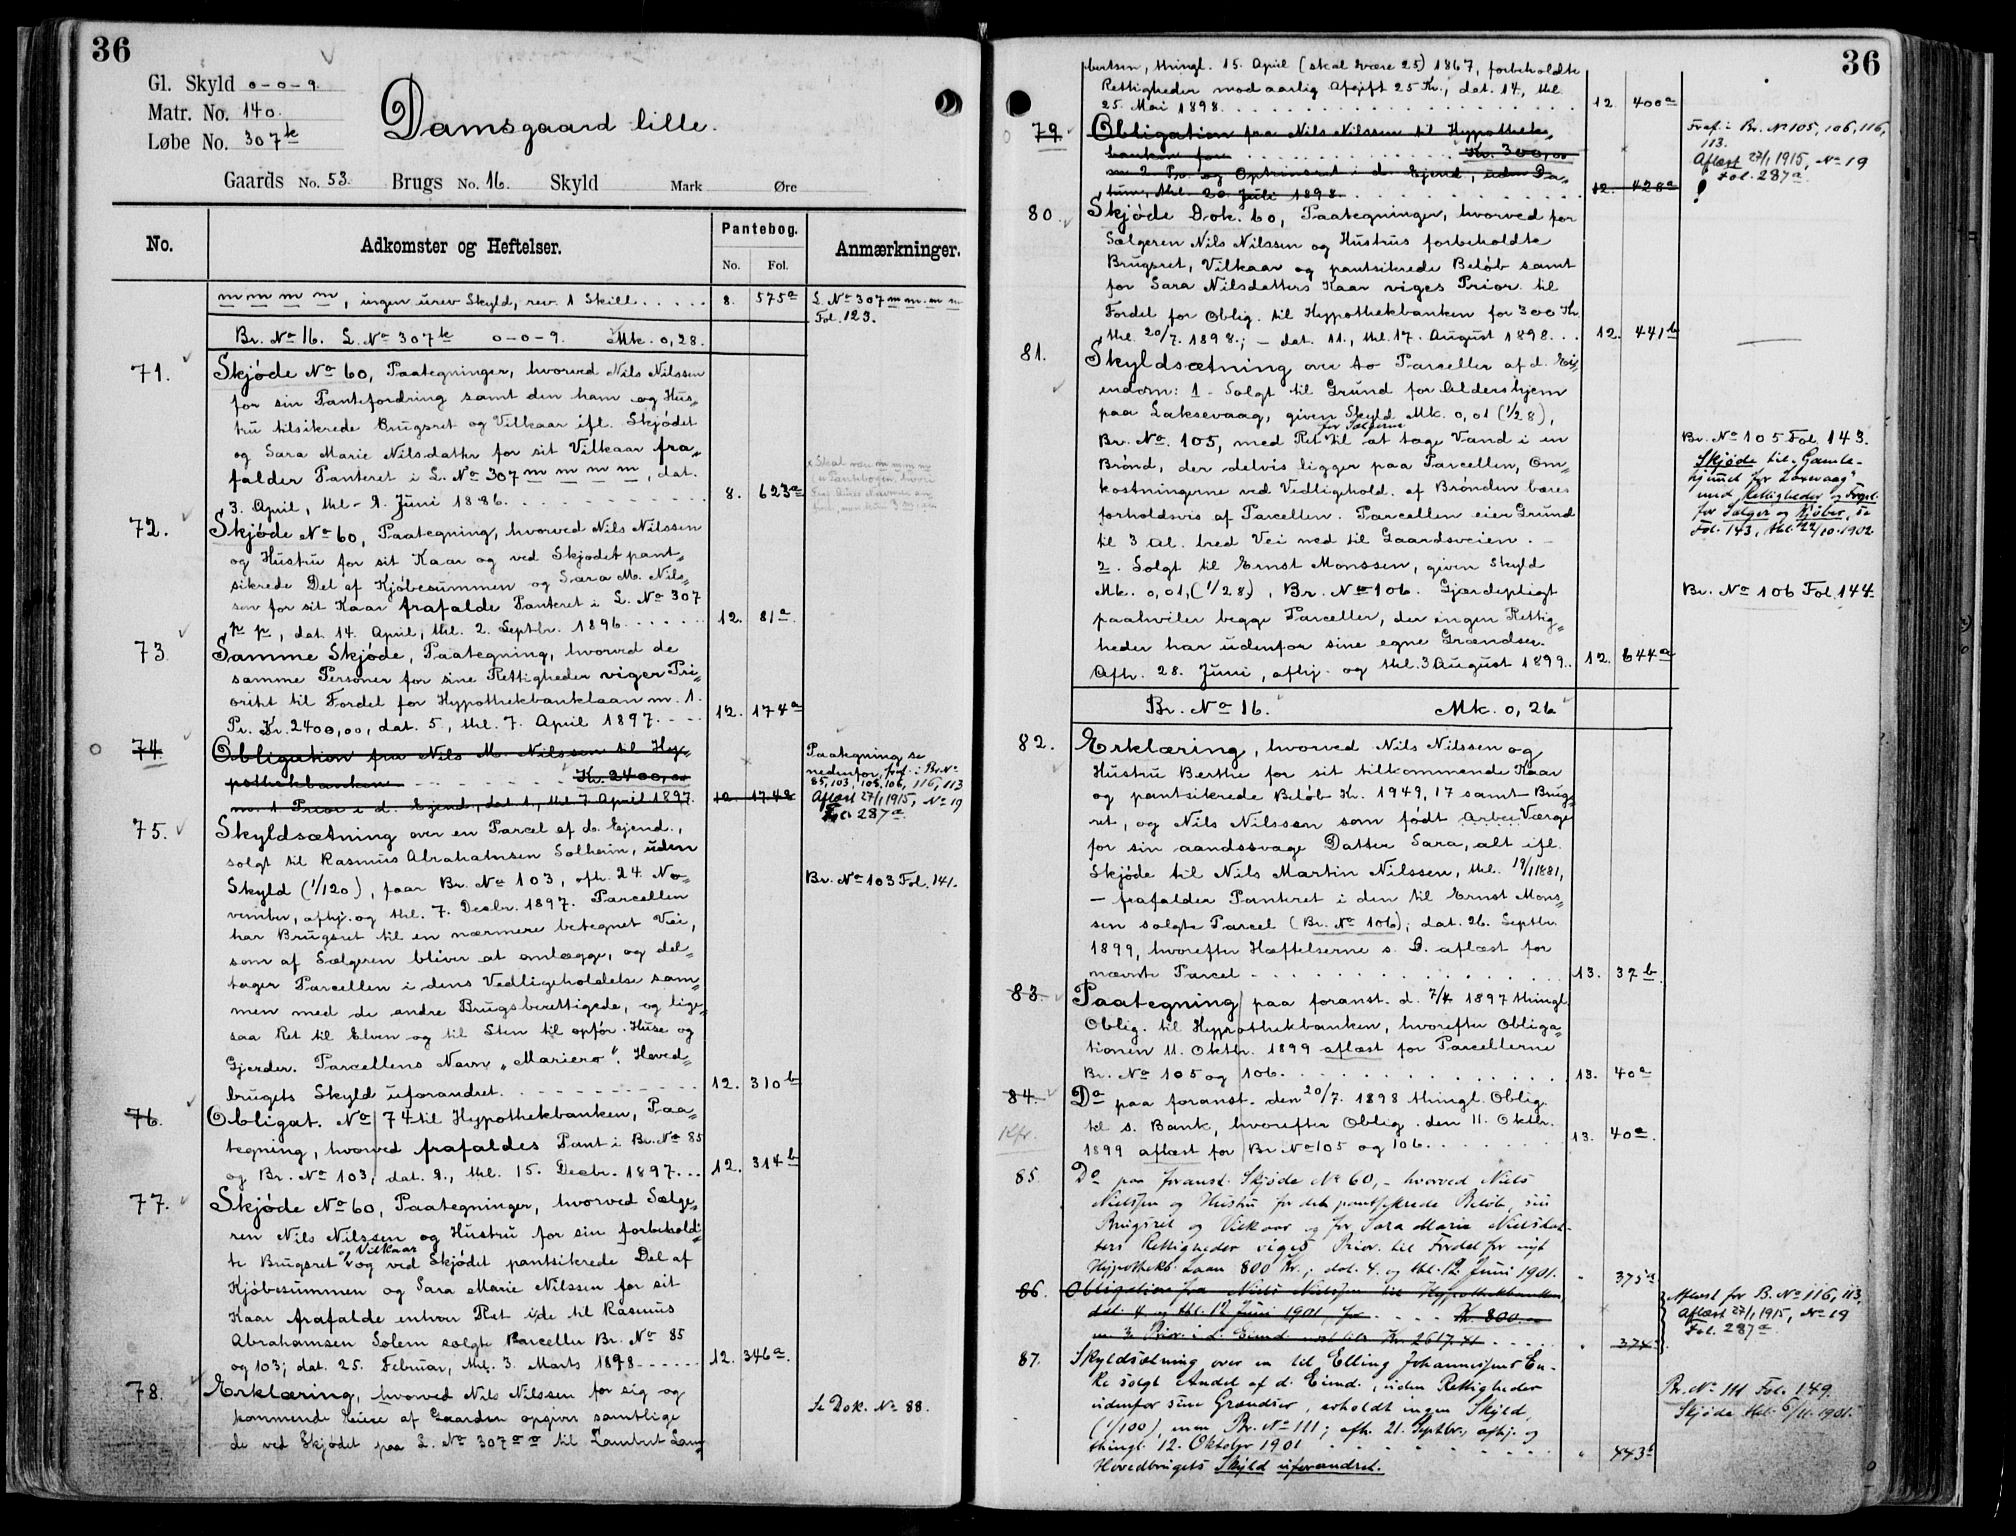 36
Gl. Skyld 0-0-9.
Matr. No. 140.
Løbe No. 307k
Damsgaard lille.
Gaards No. 53. Brugs No. 16. Skyld Mark Øre
No. Adkomster og Heftelser. Pantebog. Anmærkninger.
No. Fol.
m m m m, ingen urev Skyld, rev. 1 Skill..... 8. 575a L. No 307 m m m m
Fol. 123.
Br. No 16. L. No 307k 0-0-9. Mk. 0,28.
71. Skjøde No 60, Paategninger, hvorved Nils Nilssen
for sin Pantefordring samt den ham og Hus„
tru tilsikrede Brugsret og Vilkaar ifl. Skjødet
og Sara Marie Nilsdatter for sit Vilkaar fra„
falder Panteret i L. No 307 m m m m, dat.
3. April, thl. 2. Juni 1886. 8. 623a
72. Skjøde No 60, Paategning, hvorved Nils Nilssen
og Hustru for sit Kaar og ved Skjødet pant„
sikrede Del af Kjøbesummen og Sara M. Nils„
sen for sit Kaar frafalde Panteret i L. No 307
p p, dat. 14. April, thl. 2. Septbr. 1896. 12. 81a
73. Samme Skjøde, Paategning, hvorved de
samme Personer for sine Rettigheder viger Pri„
oritet til Fordel for Hypothekbanklaan m. 1.
Pr. Kr. 2400,00, dat. 5., thl. 7. April 1897. 12. 174a
74. Obligation fra Nils M. Nilssen til Hy„
pothekbanken Kr. 2400,00
m. 1 Prior i d. Ejend., dat. 1., thl. 7 April 1897. 12. 174b
Paategning se
nedenfor, fraf. i Br. No
85, 103, 105, 106, 116, 113
Aflæst 27/1 1915, No 19
Fol. 287a
75. Skyldsætning over en Parcel af do. Ejend.,
solgt til Rasmus Abrahamsen Solheim, uden
Skyld (1/120), faar Br. No 103, afh. 24. No„
vember, afhj. og thl. 7. Decbr. 1897. Parcellen
har Brugsret til en nærmere betegnet Vei,
som af Sælgeren bliver at omlægge, og del„
tager Parcellen i dens Vedligeholdelse sam„
men med de andre Brugsberettigede, og lige„
saa Ret til Elven og til Sten til opfør. Huse og
Gjerder. Parcellens Navn „Mariero". Hoved„
brugets Skyld uforandret. 12. 310b
Br. No 103 Fol. 141.
76. Obligat. No 74 til Hypothekbanken, Paa„
tegning, hvorved frafaldes Pant i Br. No 85
og Br. No 103, dat. 2., thl. 15. Decbr. 1897. 12. 314b
77. Skjøde No 60, Paategninger, hvorved Sælge„
ren Nils Nilssen og Hustru for sin forbehold„
te Brugsret og Vilkaar og ved Skjødet pantsikrede Del af
Kjøbesummen og Sara Marie Nilssen for sit
Kaar frafalde enhver Ret i de til Rasmus
Abrahamsen Solem solgte Parceller Br. No 85
og 103; dat. 25. Februar, thl. 3. Marts 1898 12. 346a.
78. Erklæring, hvorved Nils Nilssen for sig og
kommende Eiere af Gaarden opgiver samtlige
de ved Skjødet paa L. No 307 o o til Lambert Lam„
Se Dok. No 88.
36
bertsen, thingl. 15. April (skal være 25) 1867, forbeholdte
Rettigheder mod aarlig Afgift 25 Kr., dat. 14, thl.
25. Mai 1898. 12. 400a
79. Obligation fra Nils Nilssen til Hypotheks
banken for Kr. 300,00
m 2 Pr. og Optrinsret i d. Ejend, uden Da„
tum, thl. 20. Juli 1898. 12. 428a
Fraf. i Br. No 105, 106, 116,
113.
Aflæst 27/1 1915, No 19
Fol. 287a
80. Skjøde Dok. 60, Paategninger, hvorved for
Sælgeren Nils Nilssen og Hustrus forbeholdte
Brugsret, Vilkaar og pantsikrede Beløb samt
for Sara Nilsdatters Kaar viges Prior. til
Fordel for Oblig. til Hypothekbanken for 300 Kr.
thl. 20/7. 1898.; - dat. 11., thl. 17. August 1898. 12. 441b
81. Skyldsætning over to Parceller af d. Ei„
endom: 1. Solgt til Grund for Aldershjem
paa Laksevaag, given Skyld Mk. 0,01 (1/28),
Br. No. 105, med Ret for Sælgeren til at tage Vand i en
Brønd, der delvis ligger paa Parcellen, Om„
kostningerne ved Vedligehold. af Brønden bæres
forholdsvis af Parcellen. Parcellen eier Grund
til 3 Al. bred Vei ned til Gaardsveien. -
2. Solgt til Ernst Monssen, given Skyld
Mk. 0,01, (1/28), Br. No 106. Gjerdepligt
paahviler begge Parceller, der ingen Rettig„
heder har udenfor sine egne Grændser.
Afh. 28. Juni, afhj. og thl. 3 August 1899. 12. 644a
Br. No 105 Fol. 143.
Skjøde til „Gamle-
hjemmet for Laxevaag"
med Rettigheder og Forpl.
for Sælger og Kjøber, se
Fol. 143, thl. 22/10. 1902.
Br. No 106 Fol. 144.
Br. No 16. Mk. 0,26
82. Erklæring, hvorved Nils Nilssen og
Hustru Berthe for sit tilkommende Kaar
og pantsikrede Beløb Kr. 1949,17 samt Brugs
ret, og Nils Nilssen som født Værge
for sin aandssvage Datter Sara, alt ifl.
Skjøde til Nils Martin Nilssen, thl. 19/1 1881,
- frafalder Panteret i den til Ernst Mons„
sen solgte Parcel (Br. No 106); dat. 26. Septbr.
1899, hvorefter Hæftelserne s. D. aflæst for
nævnte Parcel 13. 37b
83. Paategning paa foranst. d. 7/4 1897 thingl.
Oblig. til Hypothekbanken, hvorefter Obliga„
tionen 11. Oktbr. 1899 aflæst for Parcellerne
Br. No 105 og 106. 13. 40a
84. Do paa foranst. den 20/7. 1898 thingl. Oblig.
til s. Bank, hvorefter Oblig. den 11. Oktbr.
1899 aflæst for Br No 105 og 106. 13. 40a.
Kfr.
85. Do paa foranst. Skjøde No 60, - hvorved Niels
Nielssen og Hustru for det pantsikrede Beløb, sin
Brugsret og Vilkaar og for Sara Marie Nielsdat-
ters Rettigheder viges Prior. til Fordel for nyt
Hypotheks Laan 800 Kr.; dat. 4. og thl. 12. Juni 1901. " 375a
86. Obligation fra Niels Nielssen til Hypothekbanken,
dat. 4 og thl. 12 Juni 1901, for Kr. 800.00
m 3 Prior. i d. Eiend. Kr. 2617,41 " 374
Aflæst for B. No 116, 113,
Aflæst 27/1 1915, No 19
Fol. 287a
87. Skyldsætning over en til Elling Johannessens En-
ke solgt Andel af d. Eiend., uden Rettigheder
udenfor sine Grændser, erholdt ingen Skyld,
(1/100), men Br. No 111; afh. 21. Septbr., afhj. og
thingl. 12. Oktober 1901 " 443b
Hovedbrugets Skyld uforandret.
Br. No 111 Fol. 149.
Skjøde thl. 6/11. 1901.